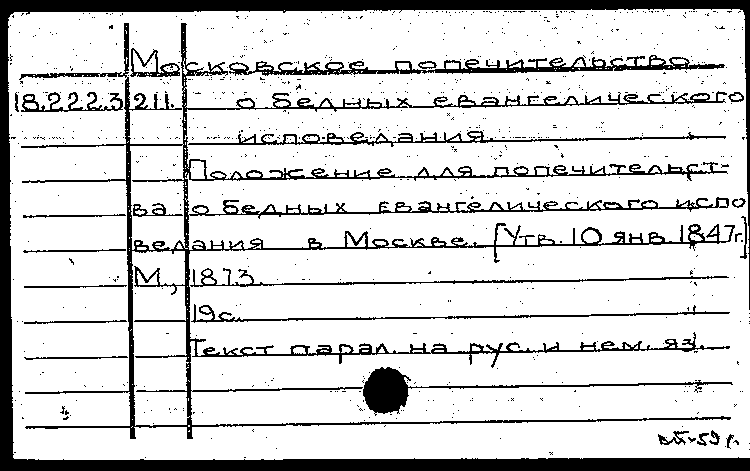 Московское попечительство
18.222.3 211. о бедных евангелического
исповедания.
Положение для попечительст-
ва о бедных евангелического испо
ведания в Москве. [Утв. 10 янв. 1847г.]
М., 1873.
19с.
Текст парал. на рус. и нем. яз.